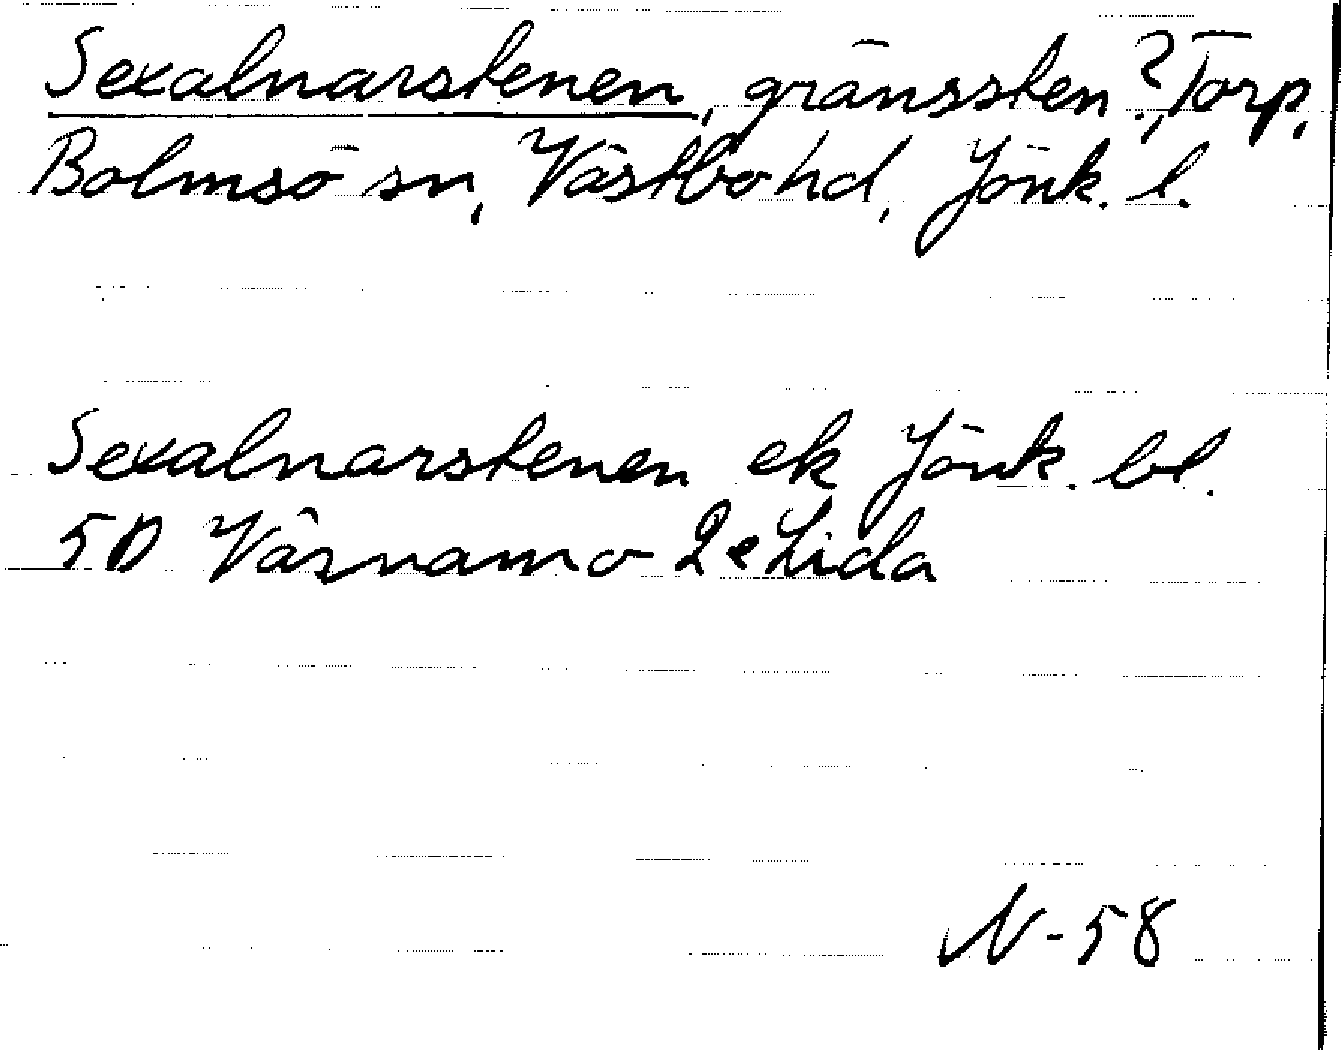 Sexalnarstenen, gränssten?, Torp,
Bolmsö sn, Västbo hd, Jönk. l.
Sexalnarstenen ek Jönk. bl.
5D Värnamo 2e Lida
N-58